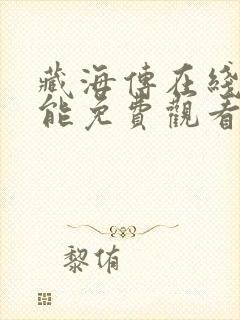 藏海傳在綫
能免費觀看
黎侑